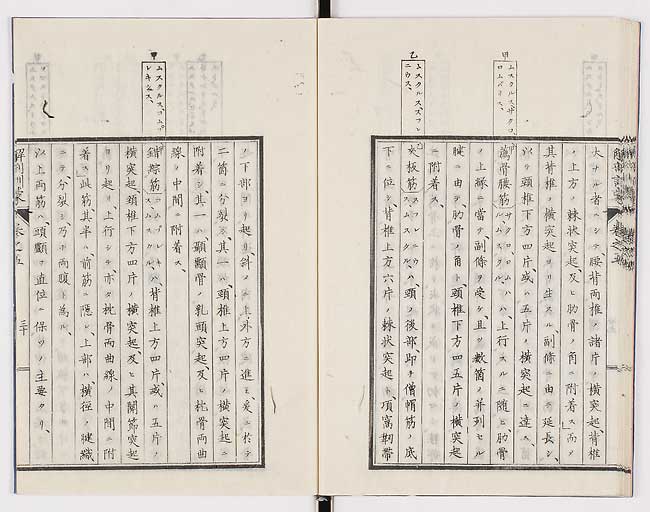 甲
ムスクルス、サクロ、
ロムバーレス、
乙
ムスクルス、スプレ
ニウス、
大ナル者ニシテ腰背両椎ノ諸片ノ横突起、背椎
ノ上方ノ棘状突起、及ヒ肋骨ノ角ニ附着ス、而メ
其背椎ノ横突起ヨリ生スル副條ニ由テ延長シ、
以テ頸椎下方四片或ハ五片ノ横突起ニ達ス、
薦骨腰筋サクロロムハハ、上行スルニ随ヒ肋骨
ノ上縁ニ當テ副條ヲ受ケ、且ツ數箇ノ并列セル
腱ニ由テ肋骨ノ角ト、頸椎下方四五片ノ横突起
ニ附着ス、
夾板筋スプレニウハ、頭ノ後部即チ僧帽筋ノ底
スムスクル、
下ニ位シ、背椎上方六片ノ棘状突起ト、項窩靭帯
ノ下部ヨリ起リ、斜ノニ上外方ニ進ミ、爰ニ於テ
二箇ニ分裂シ其一ハ頸椎上方四片ノ横突起ニ
附着シ其一ハ顳顬骨ノ乳頭突起及ヒ枕骨両曲
線ノ中間ニ附着ス、
錯綜筋コムプレキハ背椎上方四片、或ハ五片ノ
スムスクル、
横突起、頸椎下方四片ノ横突起及ヒ其關節突起
ヨリ起リ、上行シテ、亦タ枕骨両曲線ノ中間ニ附
着ス、此筋其半ハ前筋ニ隠レ、上部ハ横徑ノ腱織
ニテ分裂シ乃チ両腹ト為ル、
以上両筋ハ頭顱ヲ直位ニ保ツノ主要タリ、
甲
ムスクルス、コムプ
レキシュス、
解剖訓蒙 巻之五 三十